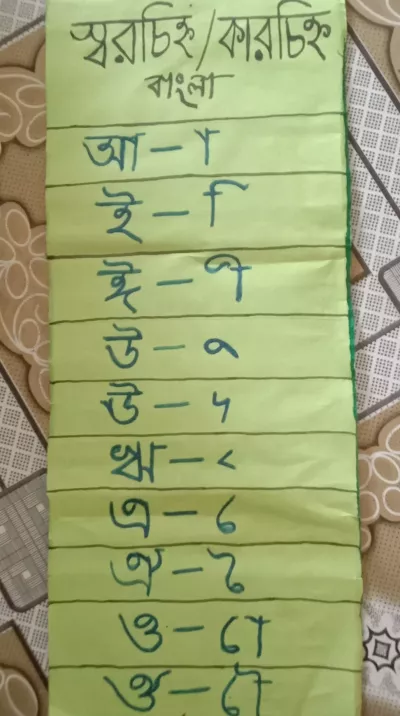 স্বরচিহ্ন/কারচিহ্ন
বাংলা
আ – া
ই – ি
ঈ – ী
উ – ু
ঊ – ূ
ঋ – ৃ
এ – ে
ঐ – ৈ
ও – ো
ঔ – ৌ